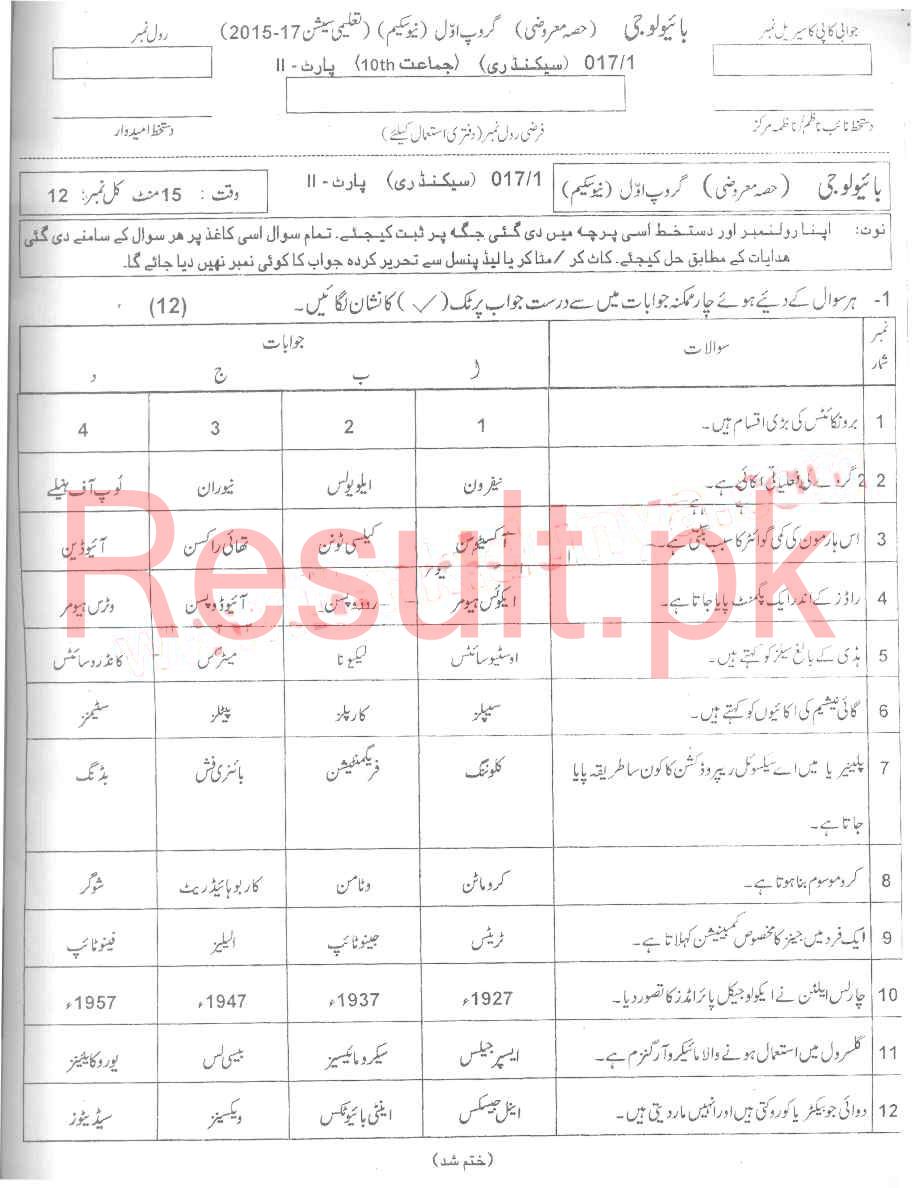 جوابی کاپی کا سیریل نمبر
بائیولوجی (حصہ معروضی) گروپ اوّل (نیو سکیم) (تعلیمی سیشن 17-2015)
رول نمبر
017/1 (سیکنڈری) (جماعت 10th) پارٹ - II
دستخط نائب ناظم/ناظمہ مرکز
فرضی رول نمبر (دفتری استعمال کیلئے)
دستخط امیدوار
بائیولوجی (حصہ معروضی) گروپ اوّل (نیو سکیم)
017/1 (سیکنڈری) پارٹ - II
وقت : 15 منٹ کل نمبر: 12
نوٹ: اپنا رولنمبر اور دستخط اسی پرچہ میں دی گئی جگہ پر ثبت کیجئے۔ تمام سوال اسی کاغذ پر ہر سوال کے سامنے دی گئی
ہدایات کے مطابق حل کیجئے۔ کاٹ کر / مٹا کر یا لیڈ پنسل سے تحریر کردہ جواب کا کوئی نمبر نہیں دیا جائے گا۔
1- ہر سوال کے دئیے ہوئے چار ممکنہ جوابات میں سے درست جواب پر ٹک (✓) کا نشان لگائیں۔ (12)
نمبر شمار سوالات جوابات
ا ب ج د
1 برونکائٹس کی بڑی اقسام ہیں۔ 1 2 3 4
2 گردے کی فعلیاتی اکائی ہے۔ نیفرون ایلویولس نیوران لُوپ آف ہینلے
3 اس ہارمون کی کمی گوائٹر کا سبب بنتی ہے۔ آکسیٹوسن کیلسی ٹونن تھائی راکسن آئیوڈین
4 راڈز کے اندر ایک پگمنٹ پایا جاتا ہے۔ ایکوئس ہیومر روڈوپسن آئیوڈوپسن وٹرس ہیومر
5 ہڈی کے بالغ سیلز کو کہتے ہیں۔ اوسٹیوسائٹس لیکیونا میٹرکس کانڈروسائٹس
6 گائی نیشیم کی اکائیوں کو کہتے ہیں۔ سیپلز کارپلز پیٹلز سٹیمنز
7 پلینیریا میں اے سیکسوئل ریپروڈکشن کا کون سا طریقہ پایا کلوننگ فریگمنٹیشن بائنری فشن بڈنگ
جاتا ہے۔
8 کروموسوم بنا ہوتا ہے۔ کروماٹن وٹامن کاربوہائیڈریٹ شوگر
9 ایک فرد میں جینز کا مخصوص کمبینیشن کہلاتا ہے۔ ٹریٹس جینوٹائپ الیلیز فینوٹائپ
10 چارلس ایلٹن نے ایکولوجیکل پائرامڈز کا تصور دیا۔ 1927ء 1937ء 1947ء 1957ء
11 گلسرول میں استعمال ہونے والا مائیکرو آرگنزم ہے۔ ایسپرجیلس سیکرومائیسیز بیسی لس یوروکائینیز
12 دوائی جو بیکٹریا کو روکتی ہیں اور انہیں مار دیتی ہیں۔ اینل جیسکس اینٹی بائیوٹکس ویکسینز سیڈیٹوز
(ختم شد)
Result.pk